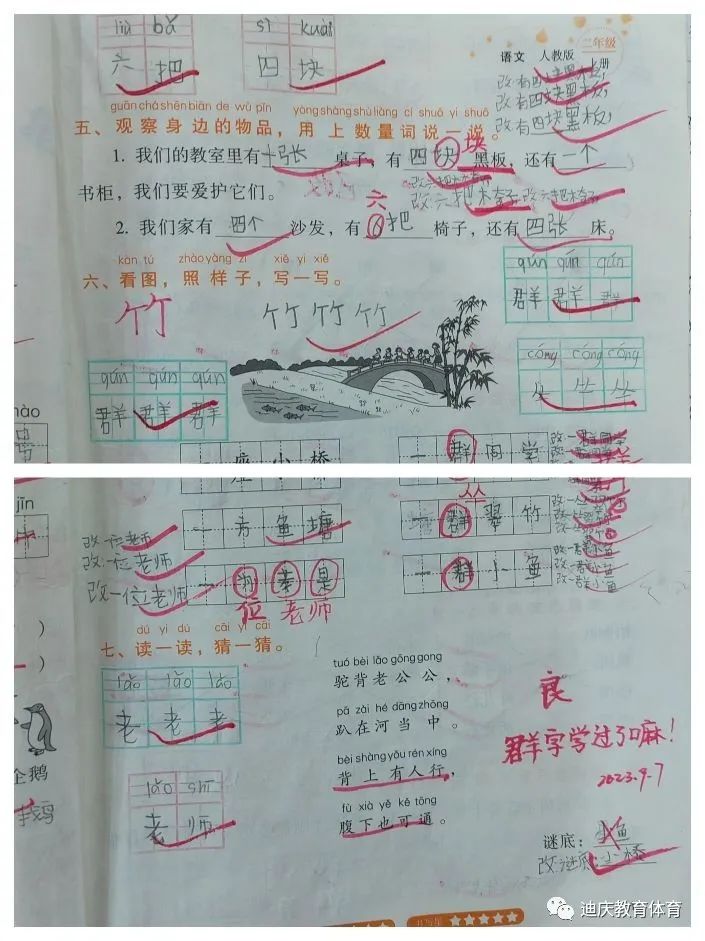 liù bǎ
六 把
sì kuài
四 块
语文 人教版 二年级 册
改:有四块黑板,
改:有四块黑板,
改 有四块黑板,
guān chá shēn biān de wù pǐn yòng shàng shù liàng cí shuō yi shuō
五、观察身边的物品，用上数量词说一说。
块
1. 我们的教室里有 十张 桌子，有 四块 黑板，还有 一个
书柜，我们要爱护它们。
改六把椅子 改六把椅子
六
2. 我们家有 四个 沙发，有 把 椅子，还有 四张 床。
kàn tú zhào yàng zi xiě yi xiě
六、看图，照样子，写一写。
竹
竹 竹 竹
qún qún qún
群 群 群
qún qún qún
群 群 群
cóng cóng cóng
丛 丛 丛
一座小桥
一群同学
一方鱼塘
丛
一群翠竹
改:一位老师
改:一位老师
改一位老师
一群小鱼
位 老师
dú yi dú cāi yi cāi
七、读一读，猜一猜。
lǎo lǎo lǎo
老 老 老
lǎo shī
老 师
tuó bèi lǎo gōng gong
驼背老公公，
pā zài hé dāng zhōng
趴在河当中。
bèi shàng yǒu rén xíng
背上有人行，
fù xià yě kě tōng
腹下也可通。
良
群字学过了嘛!
2023.9.7
谜底：小鱼
改:谜底:小桥
jīn
企鹅
迪庆教育体育